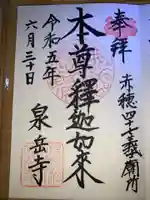 奉拝
赤穂四十七義士廟所
本尊釋迦如来
令和五年
六月三十日
泉岳寺